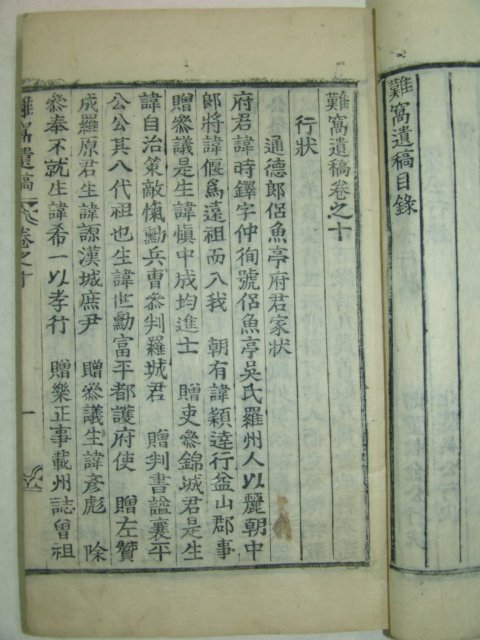 難窩遺稿目錄
難窩遺稿卷之十
行狀
通德郎侶魚亭府君家狀
府君諱時鐸字仲徇號侶魚亭吳氏羅州人以麗朝中
郎將諱偃爲遠祖而入我 朝有諱穎達行益山郡事
贈叅議是生諱愼中成均進士 贈吏叅錦城君是生
諱自治策敵愾勳兵曹叅判羅城君 贈判書謚襄平
公公其八代祖也生諱世勳富平都護府使 贈左贊
成羅原君生諱謜漢城庶尹 贈叅議生諱彦彪 除
叅奉不就生諱希一以孝行 贈樂正事載州誌曾祖
難窩遺稿 卷之十 一